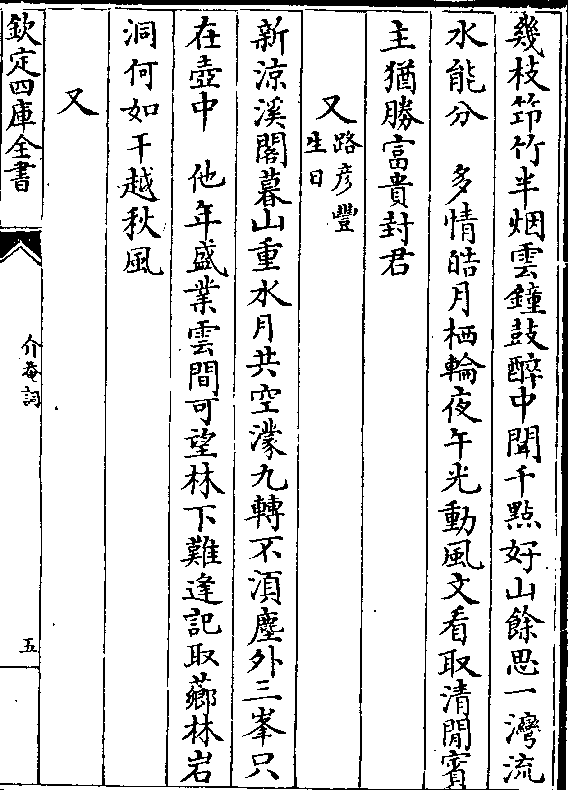 幾枝笻竹半烟雲鐘鼓醉中聞千點好山餘思一灣流
水能分　多情皓月栖輪夜午光動風文看取清閒賓
主猶勝富貴封君
又路彦豐
生日
新涼溪閣暮山重水月共空濛九轉不湏塵外三峯只
在壺中　他年盛業雲間可望林下難逢記取薌林岩
洞何如干越秋風
又
欽定四庫全書
介菴詞
五